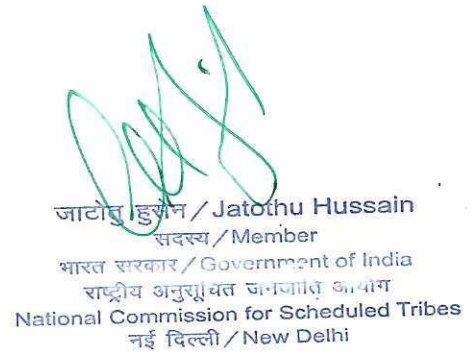 जाटोतु हुसैन / Jatothu Hussain
सदस्य / Member
भारत सरकार / Government of India
राष्ट्रीय अनुसूचित जनजाति आयोग
National Commission for Scheduled Tribes
नई दिल्ली / New Delhi